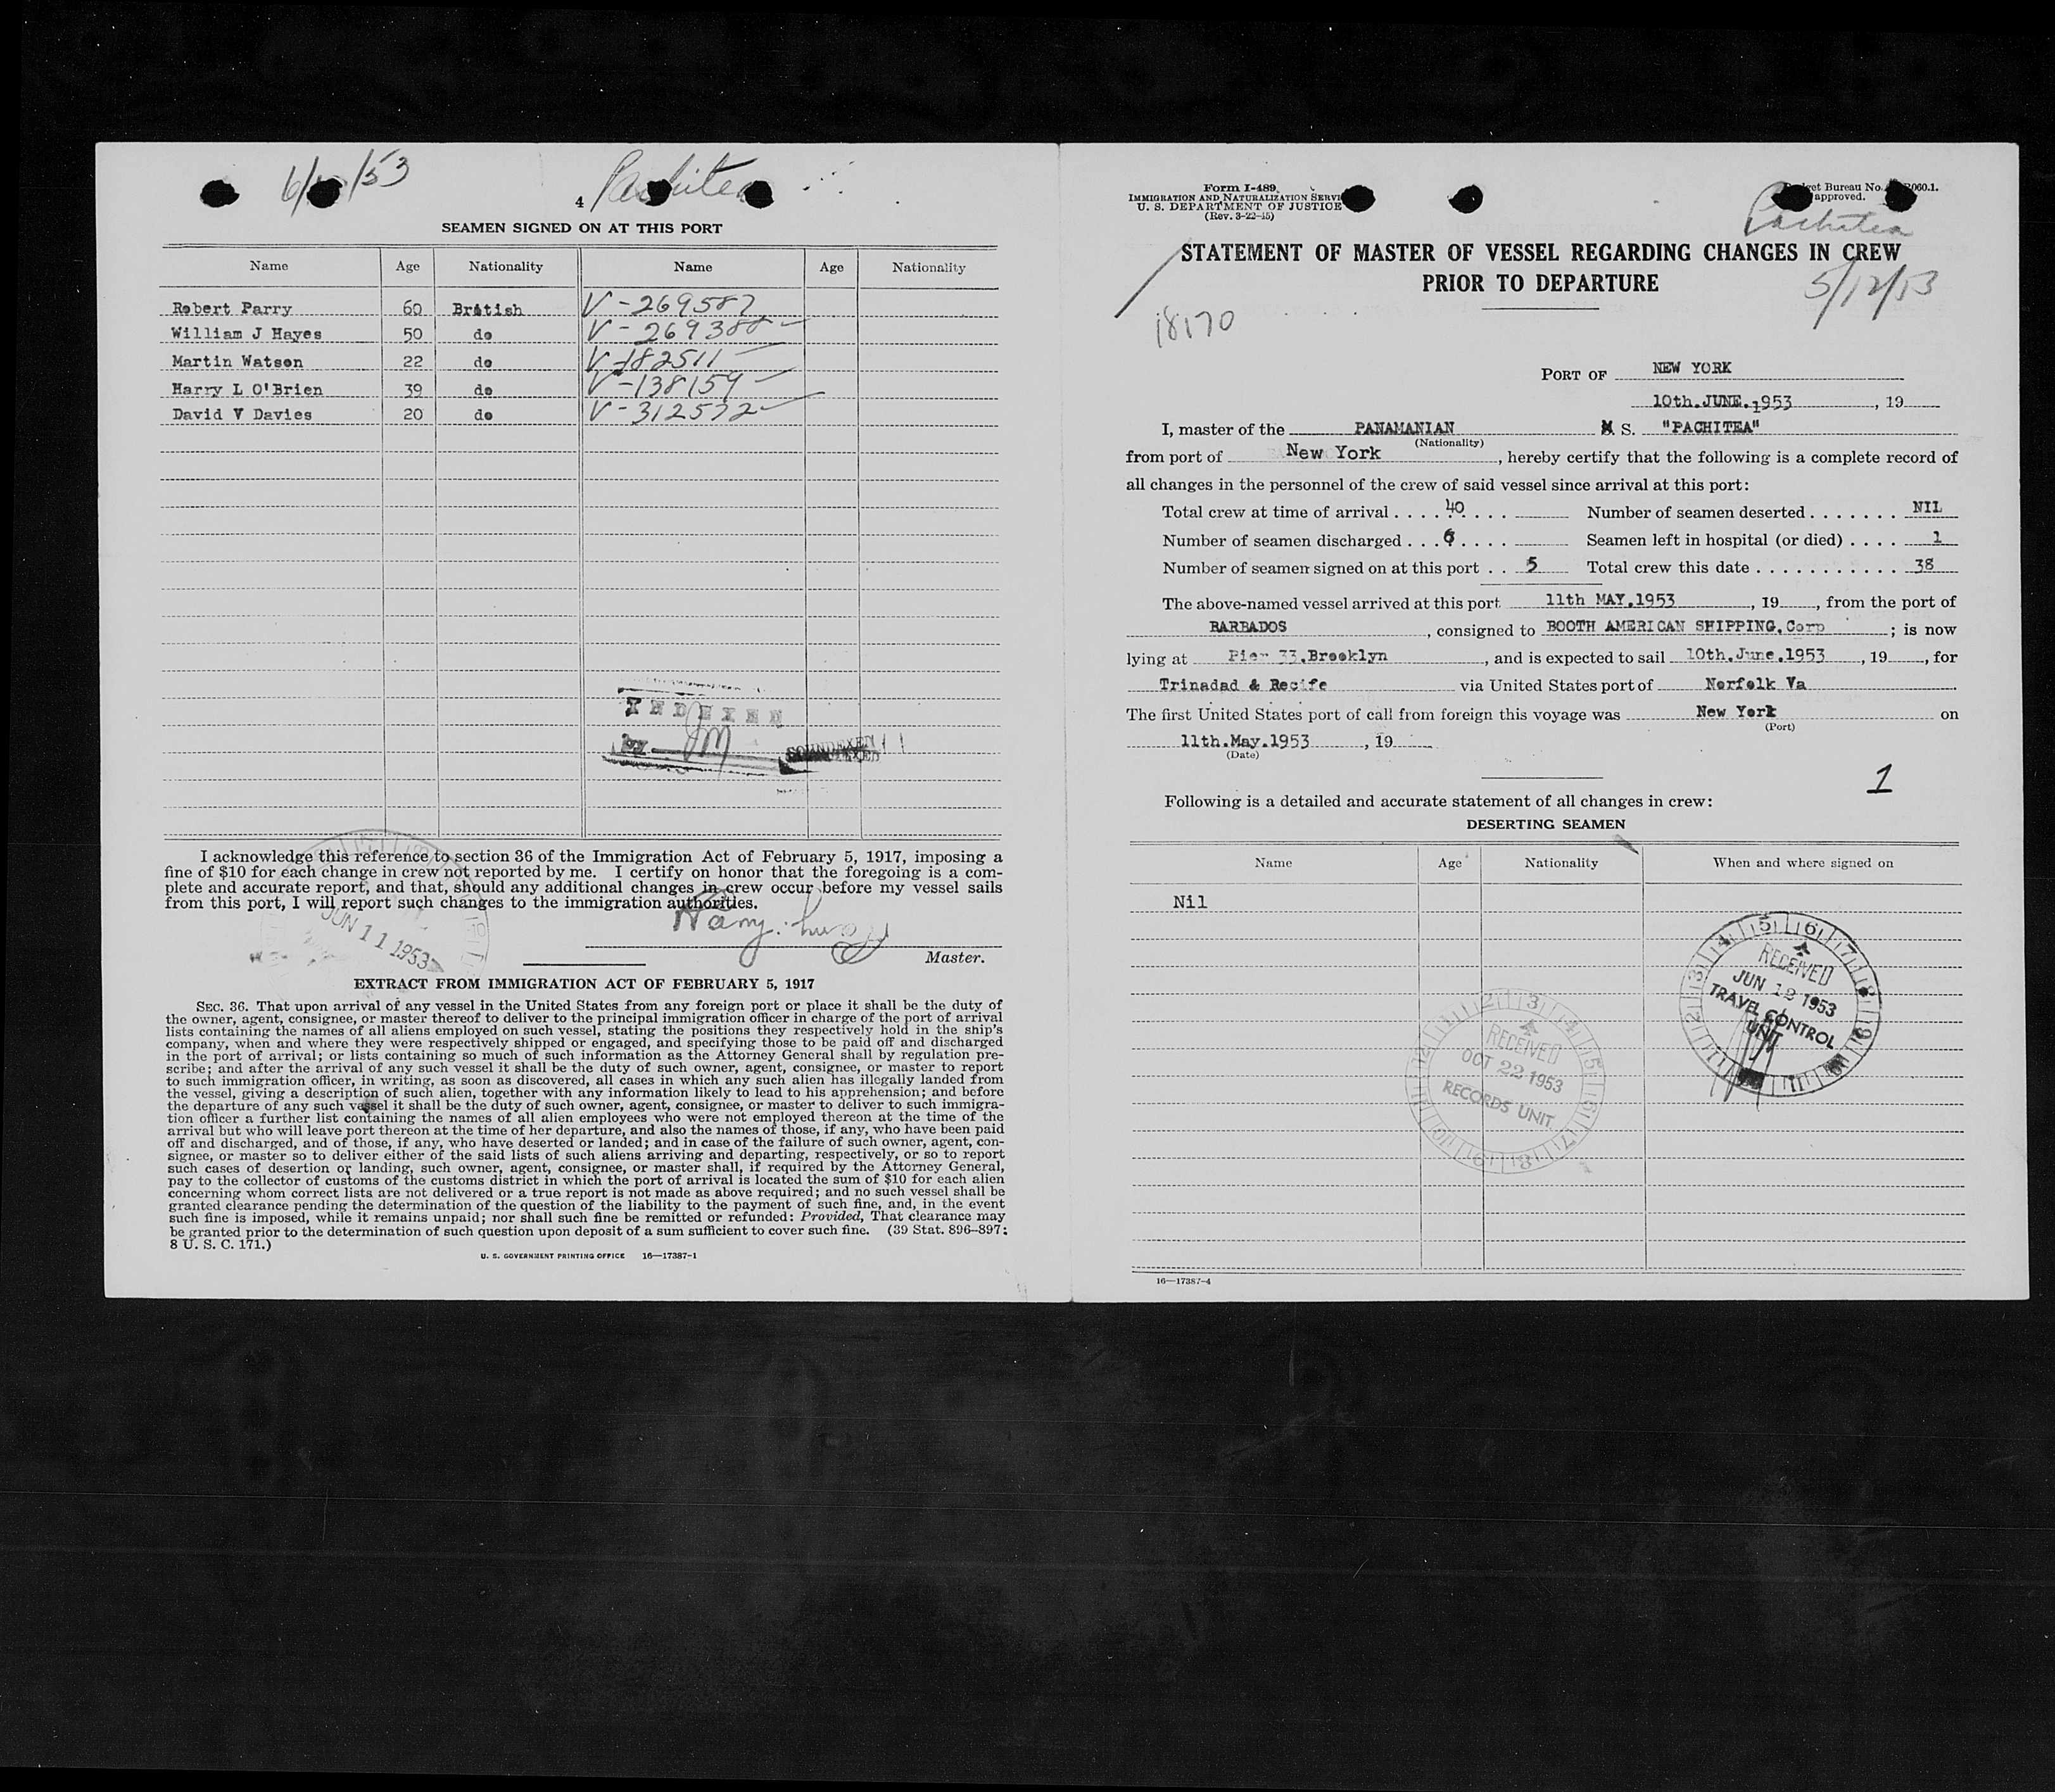 6/ /53
4 Pachitea
SEAMEN SIGNED ON AT THIS PORT
Name Age Nationality Name Age Nationality
Robert Parry 60 British V-269587
William J Hayes 50 do V-269388
Martin Watson 22 do V-182511
Harry L O'Brien 39 do V-138159
David V Davies 20 do V-312572
INDEXED
BY
SOUNDEXED
I acknowledge this reference to section 36 of the Immigration Act of February 5, 1917, imposing a
fine of $10 for each change in crew not reported by me. I certify on honor that the foregoing is a com-
plete and accurate report, and that, should any additional changes in crew occur before my vessel sails
from this port, I will report such changes to the immigration authorities.
JUN 11 1953
Master.
EXTRACT FROM IMMIGRATION ACT OF FEBRUARY 5, 1917
SEC. 36. That upon arrival of any vessel in the United States from any foreign port or place it shall be the duty of
the owner, agent, consignee, or master thereof to deliver to the principal immigration officer in charge of the port of arrival
lists containing the names of all aliens employed on such vessel, stating the positions they respectively hold in the ship's
company, when and where they were respectively shipped or engaged, and specifying those to be paid off and discharged
in the port of arrival; or lists containing so much of such information as the Attorney General shall by regulation pre-
scribe; and after the arrival of any such vessel it shall be the duty of such owner, agent, consignee, or master to report
to such immigration officer, in writing, as soon as discovered, all cases in which any such alien has illegally landed from
the vessel, giving a description of such alien, together with any information likely to lead to his apprehension; and before
the departure of any such vessel it shall be the duty of such owner, agent, consignee, or master to deliver to such immigra-
tion officer a further list containing the names of all alien employees who were not employed thereon at the time of the
arrival but who will leave port thereon at the time of her departure, and also the names of those, if any, who have been paid
off and discharged, and of those, if any, who have deserted or landed; and in case of the failure of such owner, agent, con-
signee, or master so to deliver either of the said lists of such aliens arriving and departing, respectively, or so to report
such cases of desertion or landing, such owner, agent, consignee, or master shall, if required by the Attorney General,
pay to the collector of customs of the customs district in which the port of arrival is located the sum of $10 for each alien
concerning whom correct lists are not delivered or a true report is not made as above required; and no such vessel shall be
granted clearance pending the determination of the question of the liability to the payment of such fine, and, in the event
such fine is imposed, while it remains unpaid; nor shall such fine be remitted or refunded: Provided, That clearance may
be granted prior to the determination of such question upon deposit of a sum sufficient to cover such fine. (39 Stat. 896-897;
8 U. S. C. 171.)
U. S. GOVERNMENT PRINTING OFFICE 16—17387-1
Form I-489
IMMIGRATION AND NATURALIZATION
U. S. DEPARTMENT OF JUSTICE
(Rev. 3-22-45)
Bureau No. 060.1.
approved.
Pachitea
STATEMENT OF MASTER OF VESSEL REGARDING CHANGES IN CREW
PRIOR TO DEPARTURE
5/12/53
18170
PORT OF NEW YORK
10th.JUNE.1953, 19
I, master of the PANAMANIAN S. "PACHITEA"
(Nationality)
from port of New York, hereby certify that the following is a complete record of
all changes in the personnel of the crew of said vessel since arrival at this port:
Total crew at time of arrival .... 40 .... Number of seamen deserted ....... NIL
Number of seamen discharged ... 6 .... Seamen left in hospital (or died) .... 1
Number of seamen signed on at this port .. 5 Total crew this date ........... 38
The above-named vessel arrived at this port 11th MAY.1953, 19, from the port of
BARBADOS, consigned to BOOTH AMERICAN SHIPPING.Corp; is now
lying at Pier 33.Brooklyn, and is expected to sail 10th.June.1953, 19, for
Trinadad & Recife via United States port of Norfolk Va
The first United States port of call from foreign this voyage was New York on
(Port)
11th.May.1953, 19
(Date)
1
Following is a detailed and accurate statement of all changes in crew:
DESERTING SEAMEN
Name Age Nationality When and where signed on
Nil
RECEIVED
JUN 12 1953
TRAVEL CONTROL
UNIT
RECEIVED
OCT 22 1953
RECORDS UNIT
16—17387-4